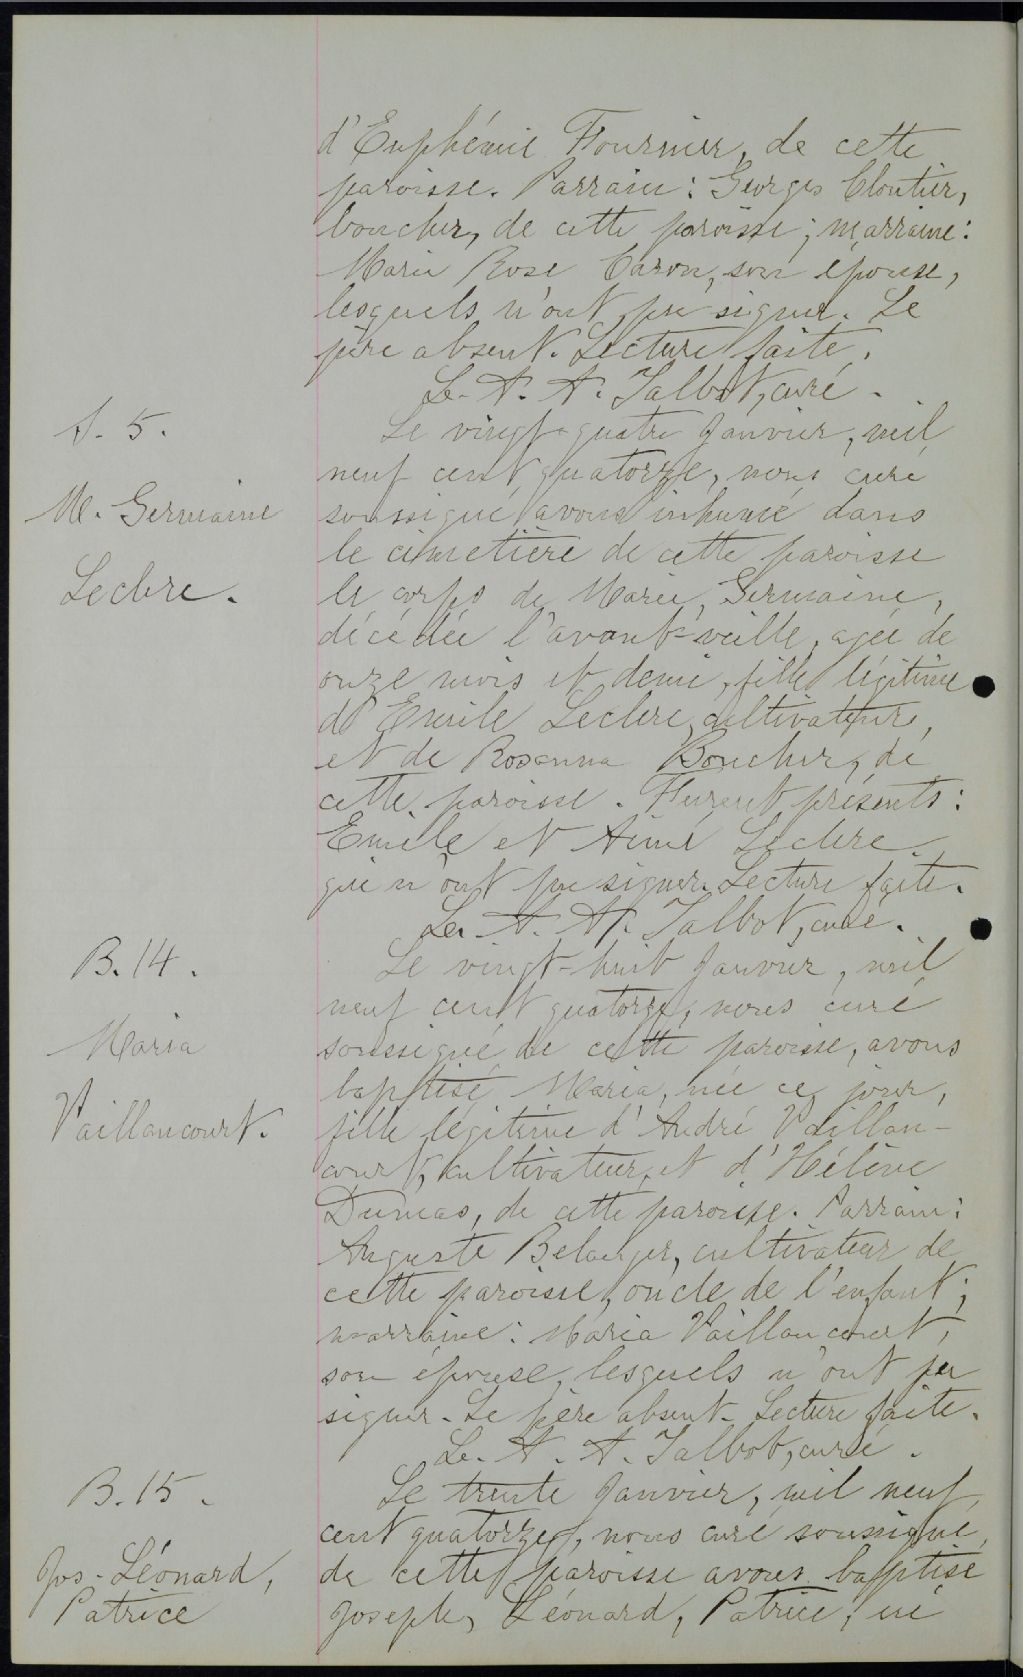 d'Euphémie Fournier, de cette
paroisse. Parrain : Georges Cloutier,
boucher, de cette paroisse ; marraine :
Marie Rose Caron, son épouse,
lesquels n'ont pu signer. Le
père absent. Lecture faite.
A. Talbot, curé.
S. 5.
M. Germaine
Leclerc.
Le vingt-quatre Janvier, mil
neuf cent quatorze, nous curé
soussigné avons inhumé dans
le cimetière de cette paroisse
le corps de Marie, Germaine,
décédée l'avant-veille, agée de
onze mois et demi, fille légitime
d'Emile Leclerc, cultivateur,
et de Rosanna Boucher, de
cette paroisse. Furent présents :
Emile et Aimé Leclerc
qui n'ont pu signer. Lecture faite.
A. Talbot, curé.
B. 14.
Maria
Vaillancourt.
Le vingt-huit Janvier, mil
neuf cent quatorze, nous curé
soussigné de cette paroisse, avons
baptisé Maria, née ce jour,
fille légitime d'André Vaillan-
court, cultivateur, et d'Hélène
Dumas, de cette paroisse. Parrain :
Auguste Belanger, cultivateur de
cette paroisse, oncle de l'enfant ;
marraine : Maria Vaillancourt,
son épouse, lesquels n'ont pu
signer. Le père absent. Lecture faite.
A. Talbot, curé.
B. 15.
Jos. Léonard,
Patrice
Le trente Janvier, mil neuf
cent quatorze, nous curé soussigné
de cette paroisse avons baptisé
Joseph, Léonard, Patrice, né